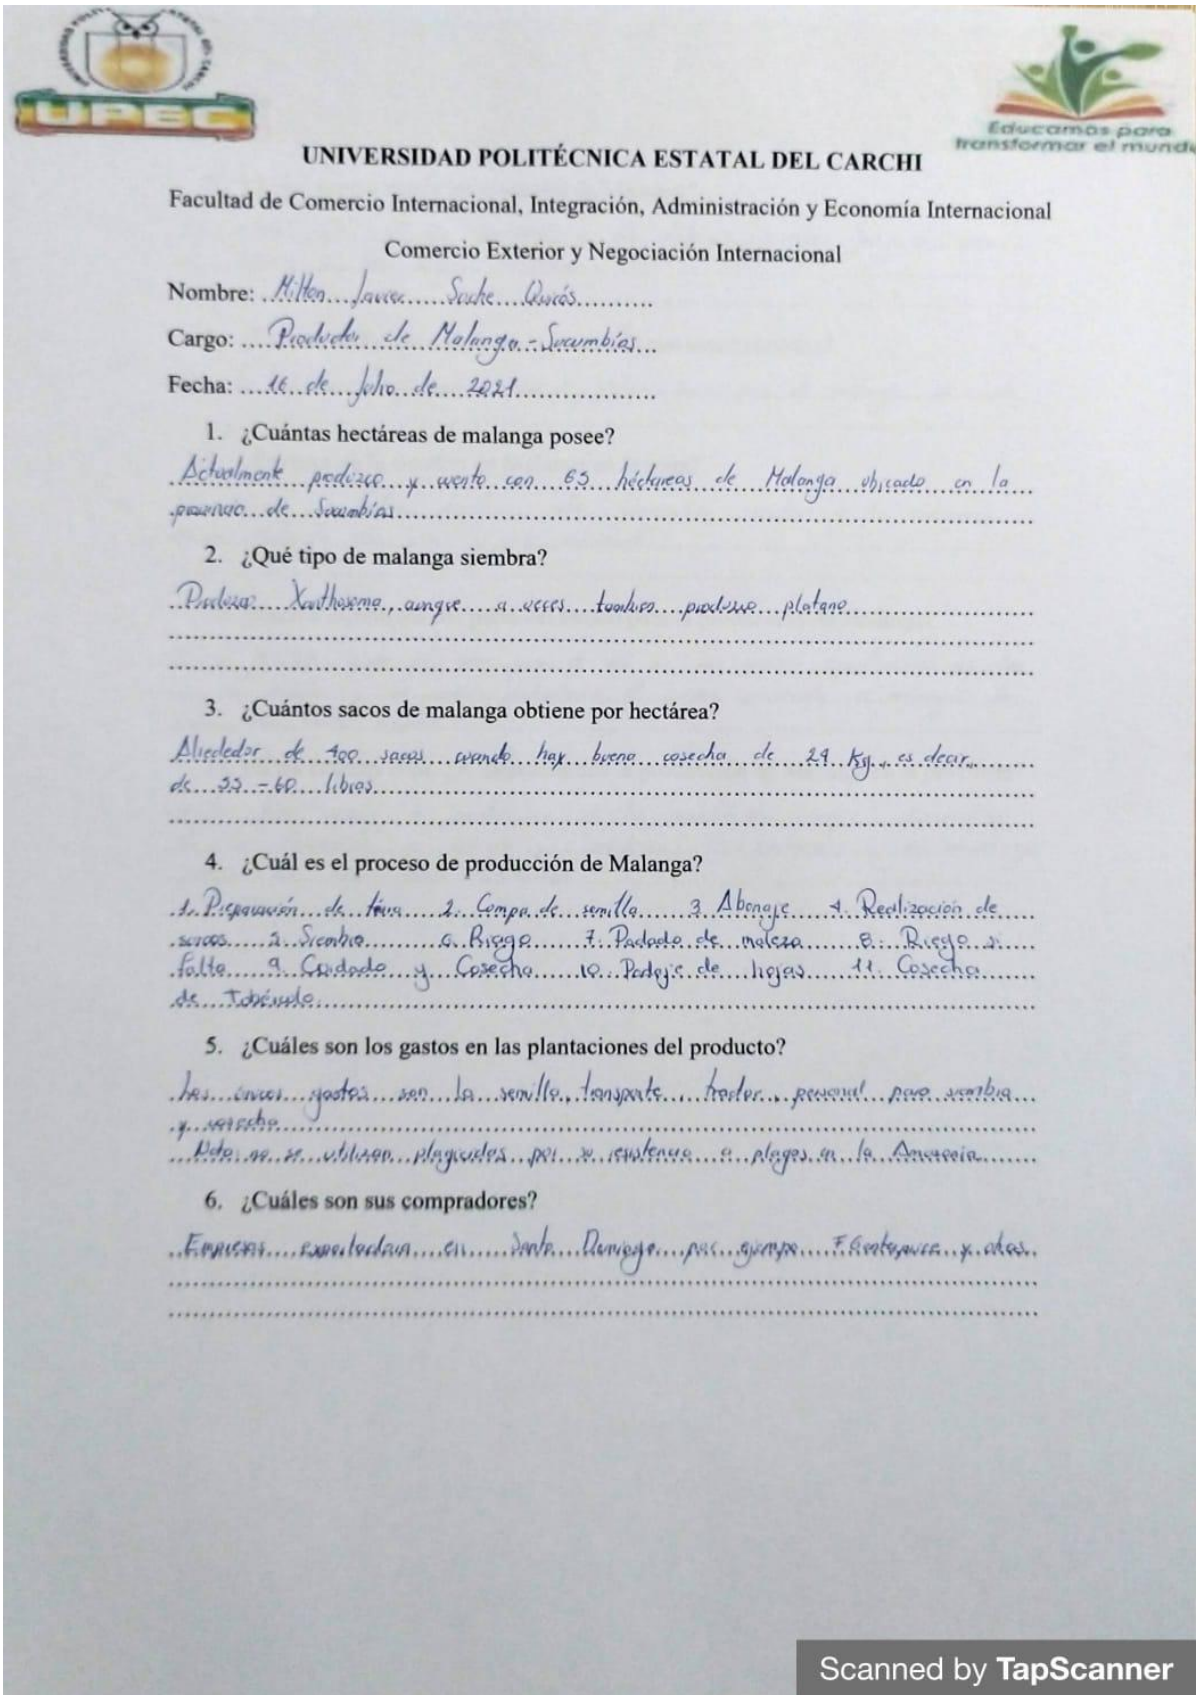 UPEC
Educamos para
transformar el mundo
UNIVERSIDAD POLITÉCNICA ESTATAL DEL CARCHI
Facultad de Comercio Internacional, Integración, Administración y Economía Internacional
Comercio Exterior y Negociación Internacional
Nombre: Milton Javier
Cargo: Productor de Malanga - Sucumbíos
Fecha: 16 de Julio de 2021
1. ¿Cuántas hectáreas de malanga posee?
Actualmente produzco y cuento con 65 héctareas de Malanga ubicado en la
provincia de Sucumbíos
2. ¿Qué tipo de malanga siembra?
Produzco Xanthosoma, aunque a veces tambien produzco platano
3. ¿Cuántos sacos de malanga obtiene por hectárea?
Alrededor de 400 sacos cuando hay buena cosecha de 29 Kg, es decir
de 55 - 60 libras
4. ¿Cuál es el proceso de producción de Malanga?
1. Preparación de 2. Compra de semilla 3. Abonaje 4. Realización de
surcos 5. Siembra 6. Riego 7. Podado de maleza 8. Riego si
falta 9. Cuidado y Cosecha 10. Podaje de hojas 11. Cosecha
de Tubérculo
5. ¿Cuáles son los gastos en las plantaciones del producto?
Los únicos gastos son la semilla, transporte, tractor, personal para siembra
y cosecha
Nota: no se utilizan plagicidas por su resistencia a plagas en la Amazonia
6. ¿Cuáles son sus compradores?
Empresas exportadora en Santo Domingo por ejempo y otras
Scanned by TapScanner